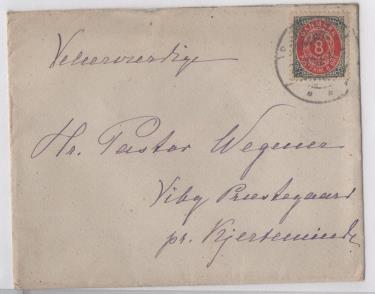 DANMARK
8
Velærværdige
Hr. Pastor Wegener
Viby Præstegaard
pr. Kjerteminde